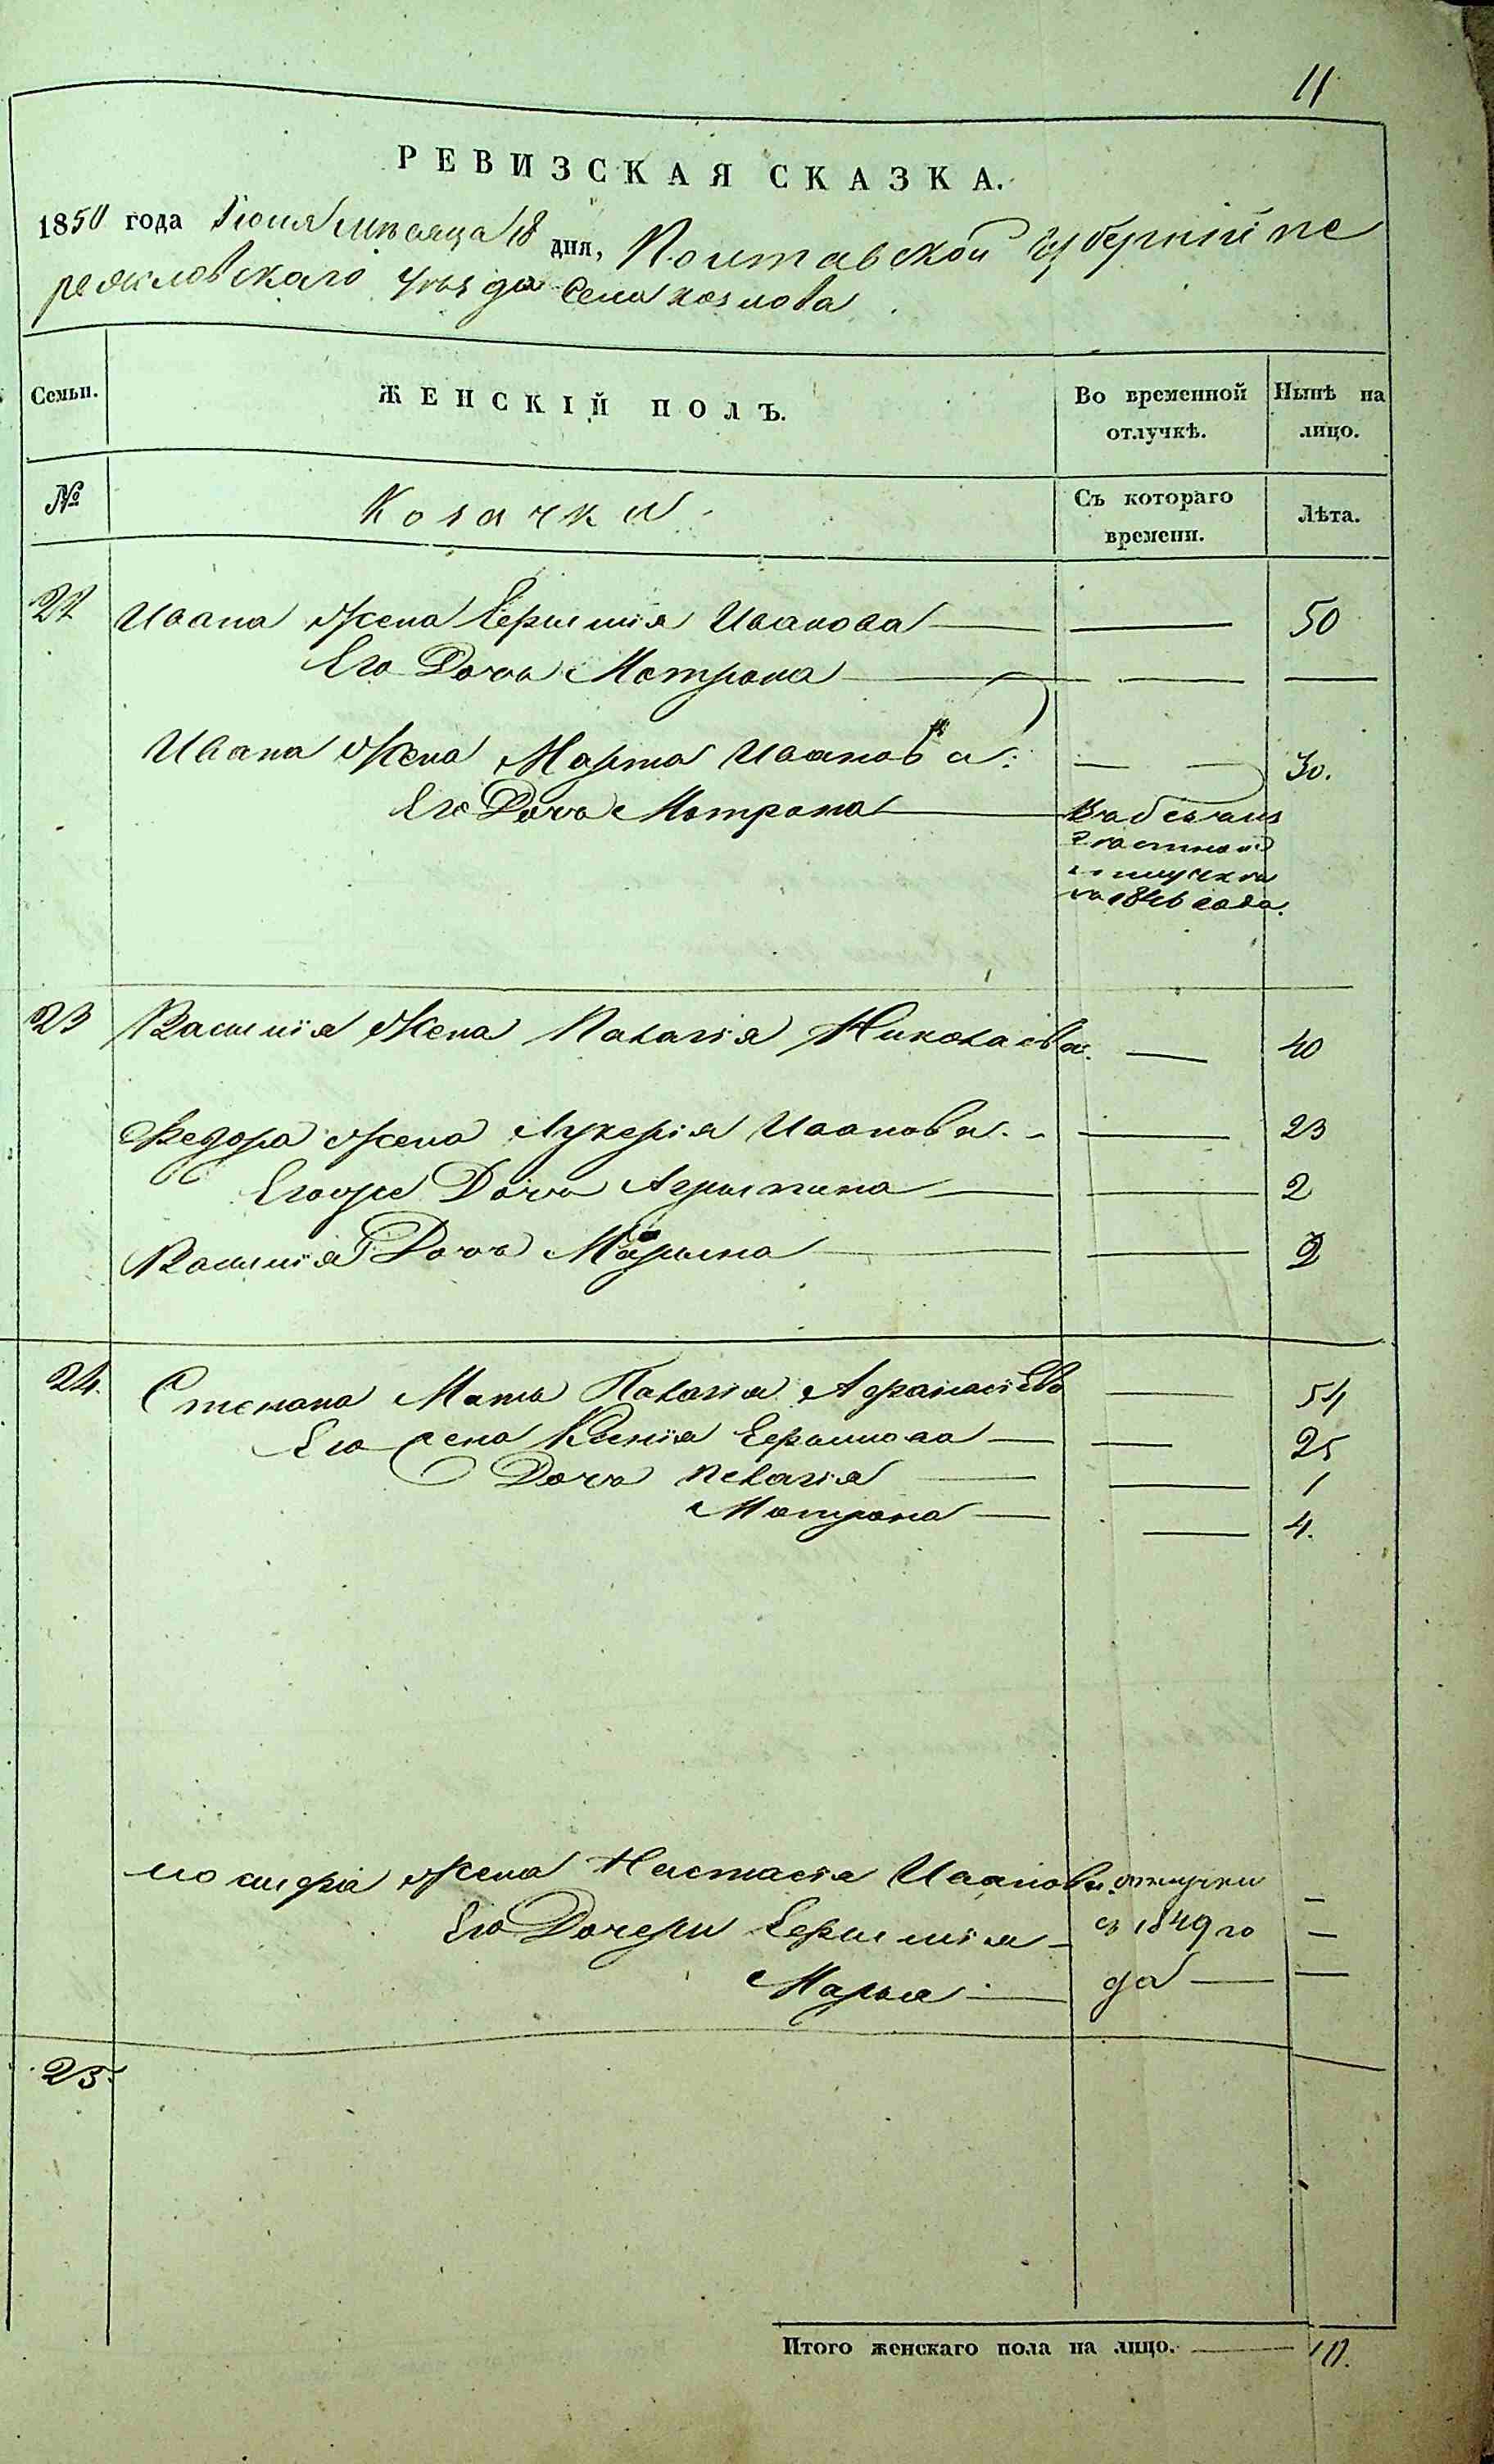 11
РЕВИЗСКАЯ СКАЗКА.
1850 года Іюня мѣсяца 18 дня, Полтавской губерніи пе
реясловскаго уѣзда села козлова
Семьи.
ЖЕНСКІЙ ПОЛЪ.
Во временной отлучкѣ.
Нынѣ на лицо.
№
Козачки
Съ котораго времени.
Лѣта.
22 Ивана Жена Евфимія Иванова — — 50
Его Дочь Мотрона — — —
Ивана Жена Марта Иванова — — 30.
Его Дочь Мотрона
отлучки
1846 года.
23 Василія Жена Палагія Николаева — 40
Федора Жена Лукерія Иванова — 23
Дочь Агрыпина — — 2
Василія Дочь Марина — — 2
24. Степана Мать Палагія Афанасіева — 54
Его жена Ксенія Ефимова — — 25
Дочь Пелагія — — 1
Мотрона — — 4.
Іосифа Жена Настасія Иванова отлучки —
Его Дочери Евфимія — съ 1849 го —
Марья — да — —
25.
Итого женскаго пола на лицо. — 10.